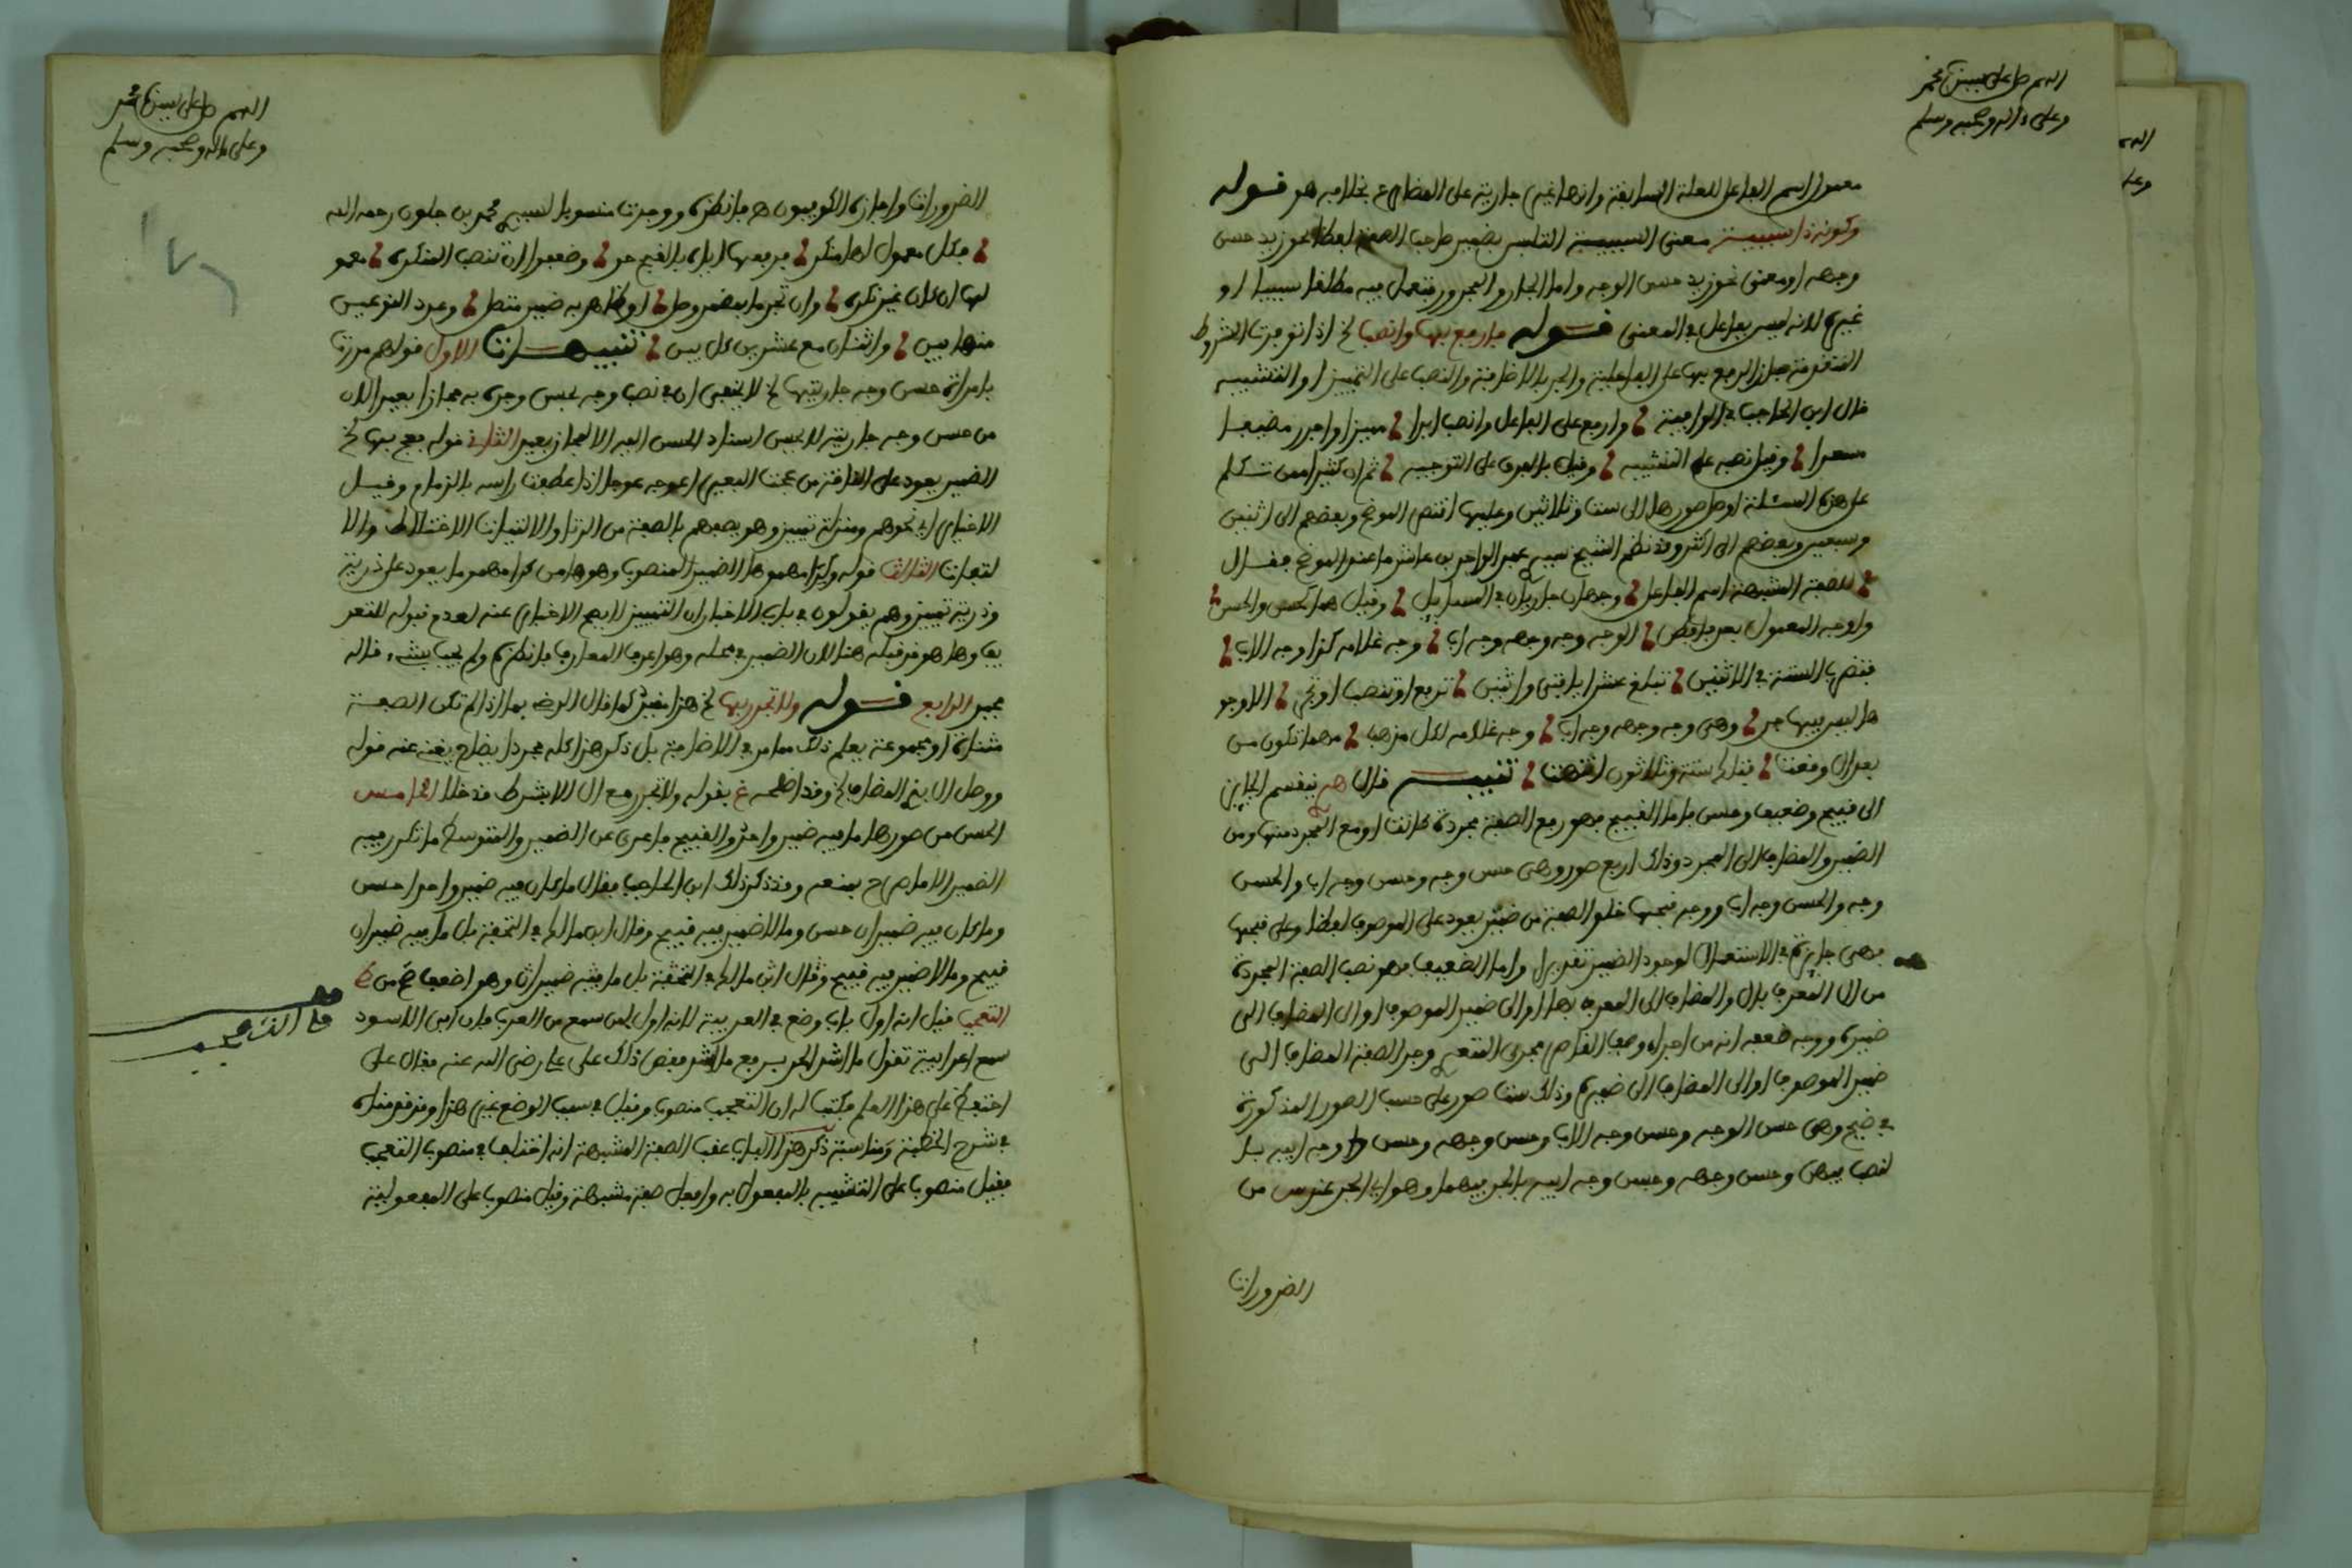 اللهم صل على سيدنا محمد
وعلى ءاله وصحبه وسلم
معمول اسم الفاعل للعلة السابقة وانها غير جارية على المضارع بخلافه هو قوله
وكونه ذا سببية معنى السببية التلبس بضمير صاحب الصفة لفظا نحو زيد حسن
وجهه او معنى نحو زيد حسن الوجه واما الجار والمجرور فتعمل فيه مطلقا سببيا او
غيره لانه ليس بفاعل في المعنى قوله فارفع بها وانصب الخ اذا توفرت الشروط
المتقدمة جاز الرفع بها على الفاعلية والجر بالاضافة والنصب على التمييز او التشبيه
قال ابن الحاجب في الوافية وارفع على الفاعل وانصب ابدا مميزا واجرر مضيفا
مسعدا وقيل نصبه على التشبيه وقيل بالفرق على التوجيه ثم ان كثيرا ممن تكلم
على هذه المسئلة اوصل صورها الى ست وثلاثين وعليها اقتصر الموضح وبعضهم الى اثنين
وسبعين وبعضهم الى اكثر وقد نظم الشيخ سيدي عبد الواحد بن عاشر ما عند الموضح فقال
للصفة المشبهة اسم الفاعل وجهان جاريان في المسايل وقيل هما كحسن والحسن
واوجه المعمول بعد فاقض الوجه وجه وجهه وجه اب وجه غلامه كذا وجه الاب
فتضرب الستة في الاثنين تبلغ عشرا يا فتى واثنين ترفع او تنصب او تجر الاوجه
هل ليس فيها جر وهي وجه وجهه وجه اب وجه غلامه لكل مذهب مهما تكون من
بعد ال وقعت فتلك ستة وثلاثون انتهت تنبيه قال ينقسم الجايز
الى قبيح وضعيف وحسن فاما القبيح فهو رفع الصفة مجردة كانت او مع ال المجرد منها ومن
الضمير والمضاف الى المجرد وذلك اربع صور وهي حسن وجه وحسن وجه اب والحسن
وجه والحسن وجه اب ووجه قبحها خلو الصفة من ضمير يعود على الموصوف لفظا وعلى قبحها
فهي جايزة في الاستعمال لوجود الضمير تقديرا واما الضعيف فهو نصب الصفة المجردة
من ال المعرف بال والمضاف الى المعرف بها او الى ضمير الموصوف او الى المضاف الى
ضميره ووجه ضعفه انه من اجراء وصف القاصر مجرى المتعدي وجر الصفة المضاف الى
ضمير الموصوف او الى المضاف الى ضميره وذلك ست صور على حسب الصور المذكورة
في ضيح وهي حسن الوجه وحسن وجه الاب وحسن وجهه وحسن وجه ابيه بال
نصب فيهن وحسن وجهه وحسن وجه ابيه بالجر فيهما وهو اي الجر عند س من
الضرورات
اللهم صل على سيدنا محمد
وعلى ءاله وصحبه وسلم
الضرورات واجازه الكوفيون فانظره ووجدت منسوبا لسيدي محمد بن جلون رحمه الله
فكل معمول لها منكر فرفعها اياه بالقبح حر وضعفوا ان تنصب المنكره معمو
لها ان كان غير نكره وان تجر ما بمضمر وصل او ظاهر به ضمير متصل وعدد النوعين
منها بين واثنان مع عشرين كل بين تنبيهات الاول قولهم مررت
بامراة حسن وجه جاريتها الخ لا يخفى ان في نصب وجه بحسن وجره به مجازا بعيدا لان
من حسن وجه جاريته لا يحسن اسناد الحسن اليه الا لمجاز بعيد الثاني قوله بها الخ
الضمير يعود على الناقة من عجت البعير اعوجه عوجا اذا عطفت راسه بالزمام وقيل
لتعارف الثالث قوله
وذرية تمييز وهم يقولون في باب الاخبار ان التمييز لا يصح الاخبار عنه لعدم قبوله للتعر
يف وهل هو من قبيله هنا لان الضمير في محله وهو اعرف المعارف فانظره ولم يجب بشيء قاله
الرابع قوله ولا تجرر بها الخ هذا مقيد كما قال الرضي بما اذا لم تكن الصفة
مثناة او مجموعة يعلم ذلك مما مر في الاضافة بل ذكر هذا كله مجرد ايضاح يغني عنه قوله
ووصل ال بذا المضاف الخ وقد اصلحه بقوله ولا تجرر مع ال الا بشرط قد خلا الخامس
الحسن من صورها ما فيه ضمير واحد والقبيح ما عري عن الضمير والمتوسط ما تكرر فيه
الضمير وقد ذكر ذلك ابن الحاجب فقال ما كان فيه ضمير واحد احسن
وما كان فيه ضميران حسن وما لا ضمير فيه قبيح وقال ابن مالك في التحفة بل ما فيه ضميران
قبيح وما لا ضمير فيه قبيح وقال ابن مالك في التحفة بل ما فيه ضميران وهو اضعف
التعجب قيل انه اول باب وضع في العربية لانه اول لحن سمع من العرب فان ابى الاسود
سمع اعرابية تقول ما اشد الحر برفع ما اشد فقص ذلك على علي رضي الله عنه فقال على
هذا العلم فكتب له ان التعجب منصوب وقيل في سبب الوضع غير هذا وقد قدمناه
في شرح الخطبة ومناسبة ذكر هذا الباب عقب الصفة المشبهة انه اختلف في منصوب التعجب
فقيل منصوب على التشبيه بالمفعول به وافعل صفة مشبهة وقيل منصوب على المفعولية
التعجب